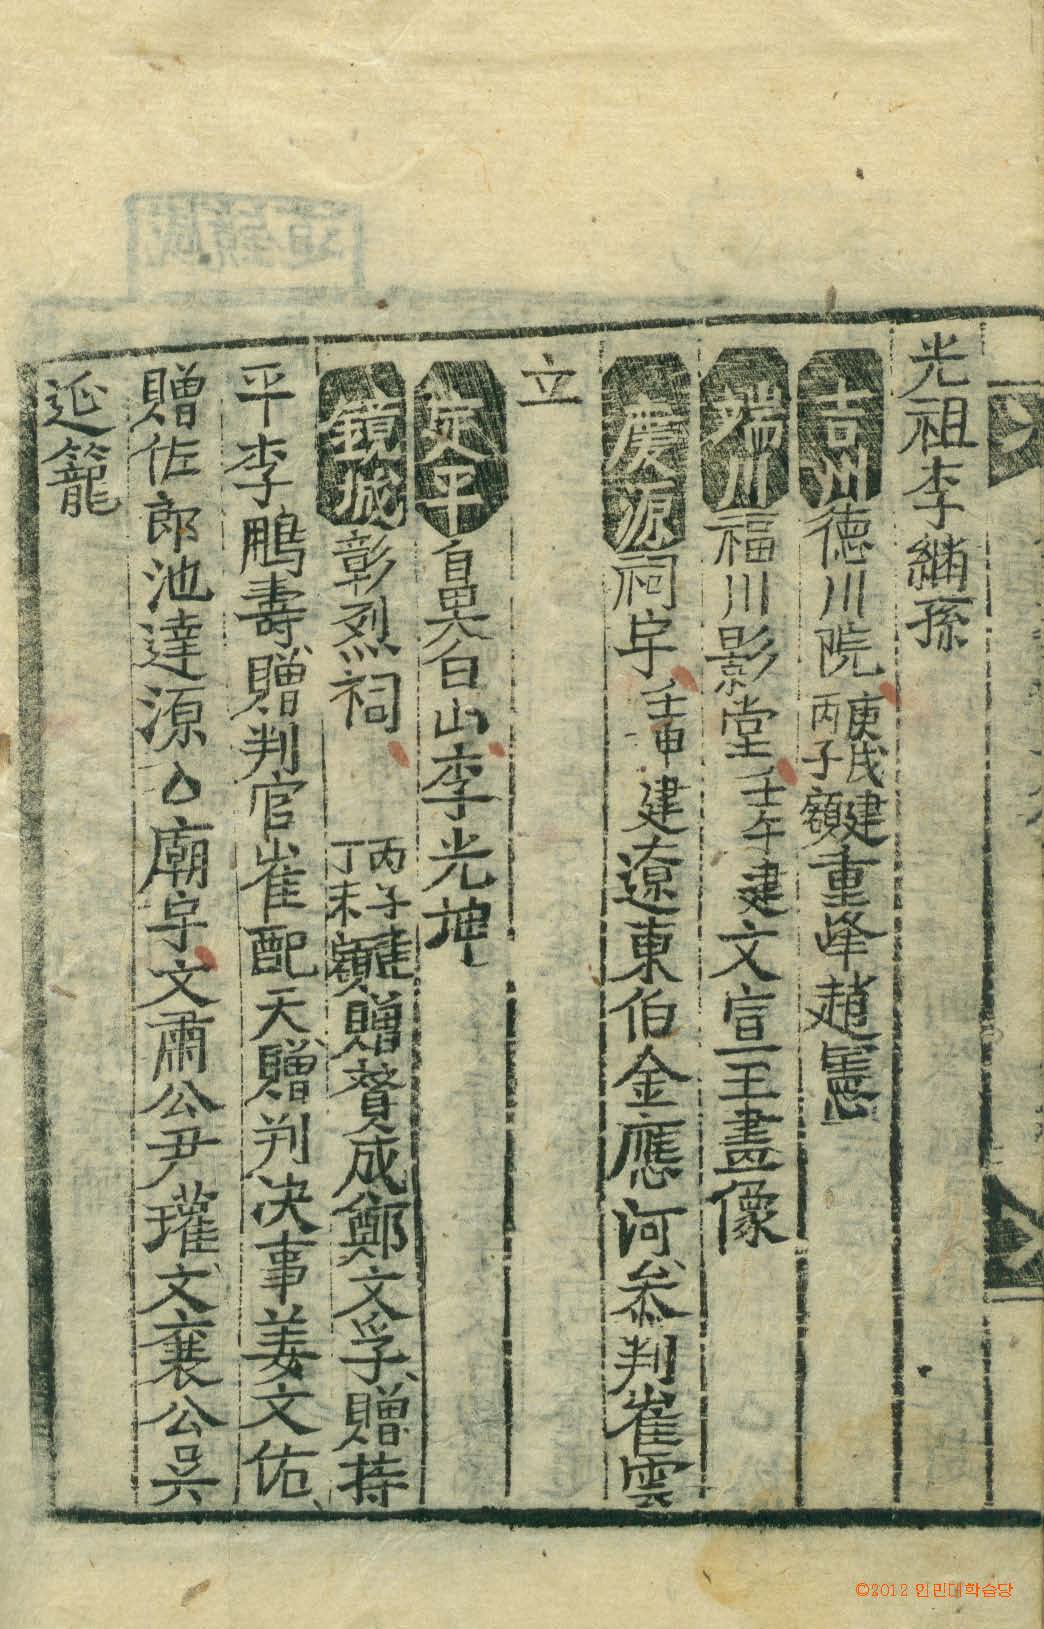 光祖李繼孫
吉州德川院庚戌建丙子額重峰趙憲
端川福川影堂壬午建文宣王畫像
慶源祠宇壬申建遼東伯金應河叅判崔雲
立
定平自鼻白山李光坤
鏡城彰烈祠丙子建丁未額贈賛成鄭文孚贈持
平李鵬壽贈判官崔配天贈判决事姜文佑
贈佐郎池達源厶廟宇文肅公尹瓘文襄公吳
延籠
©2012 인민대학습당